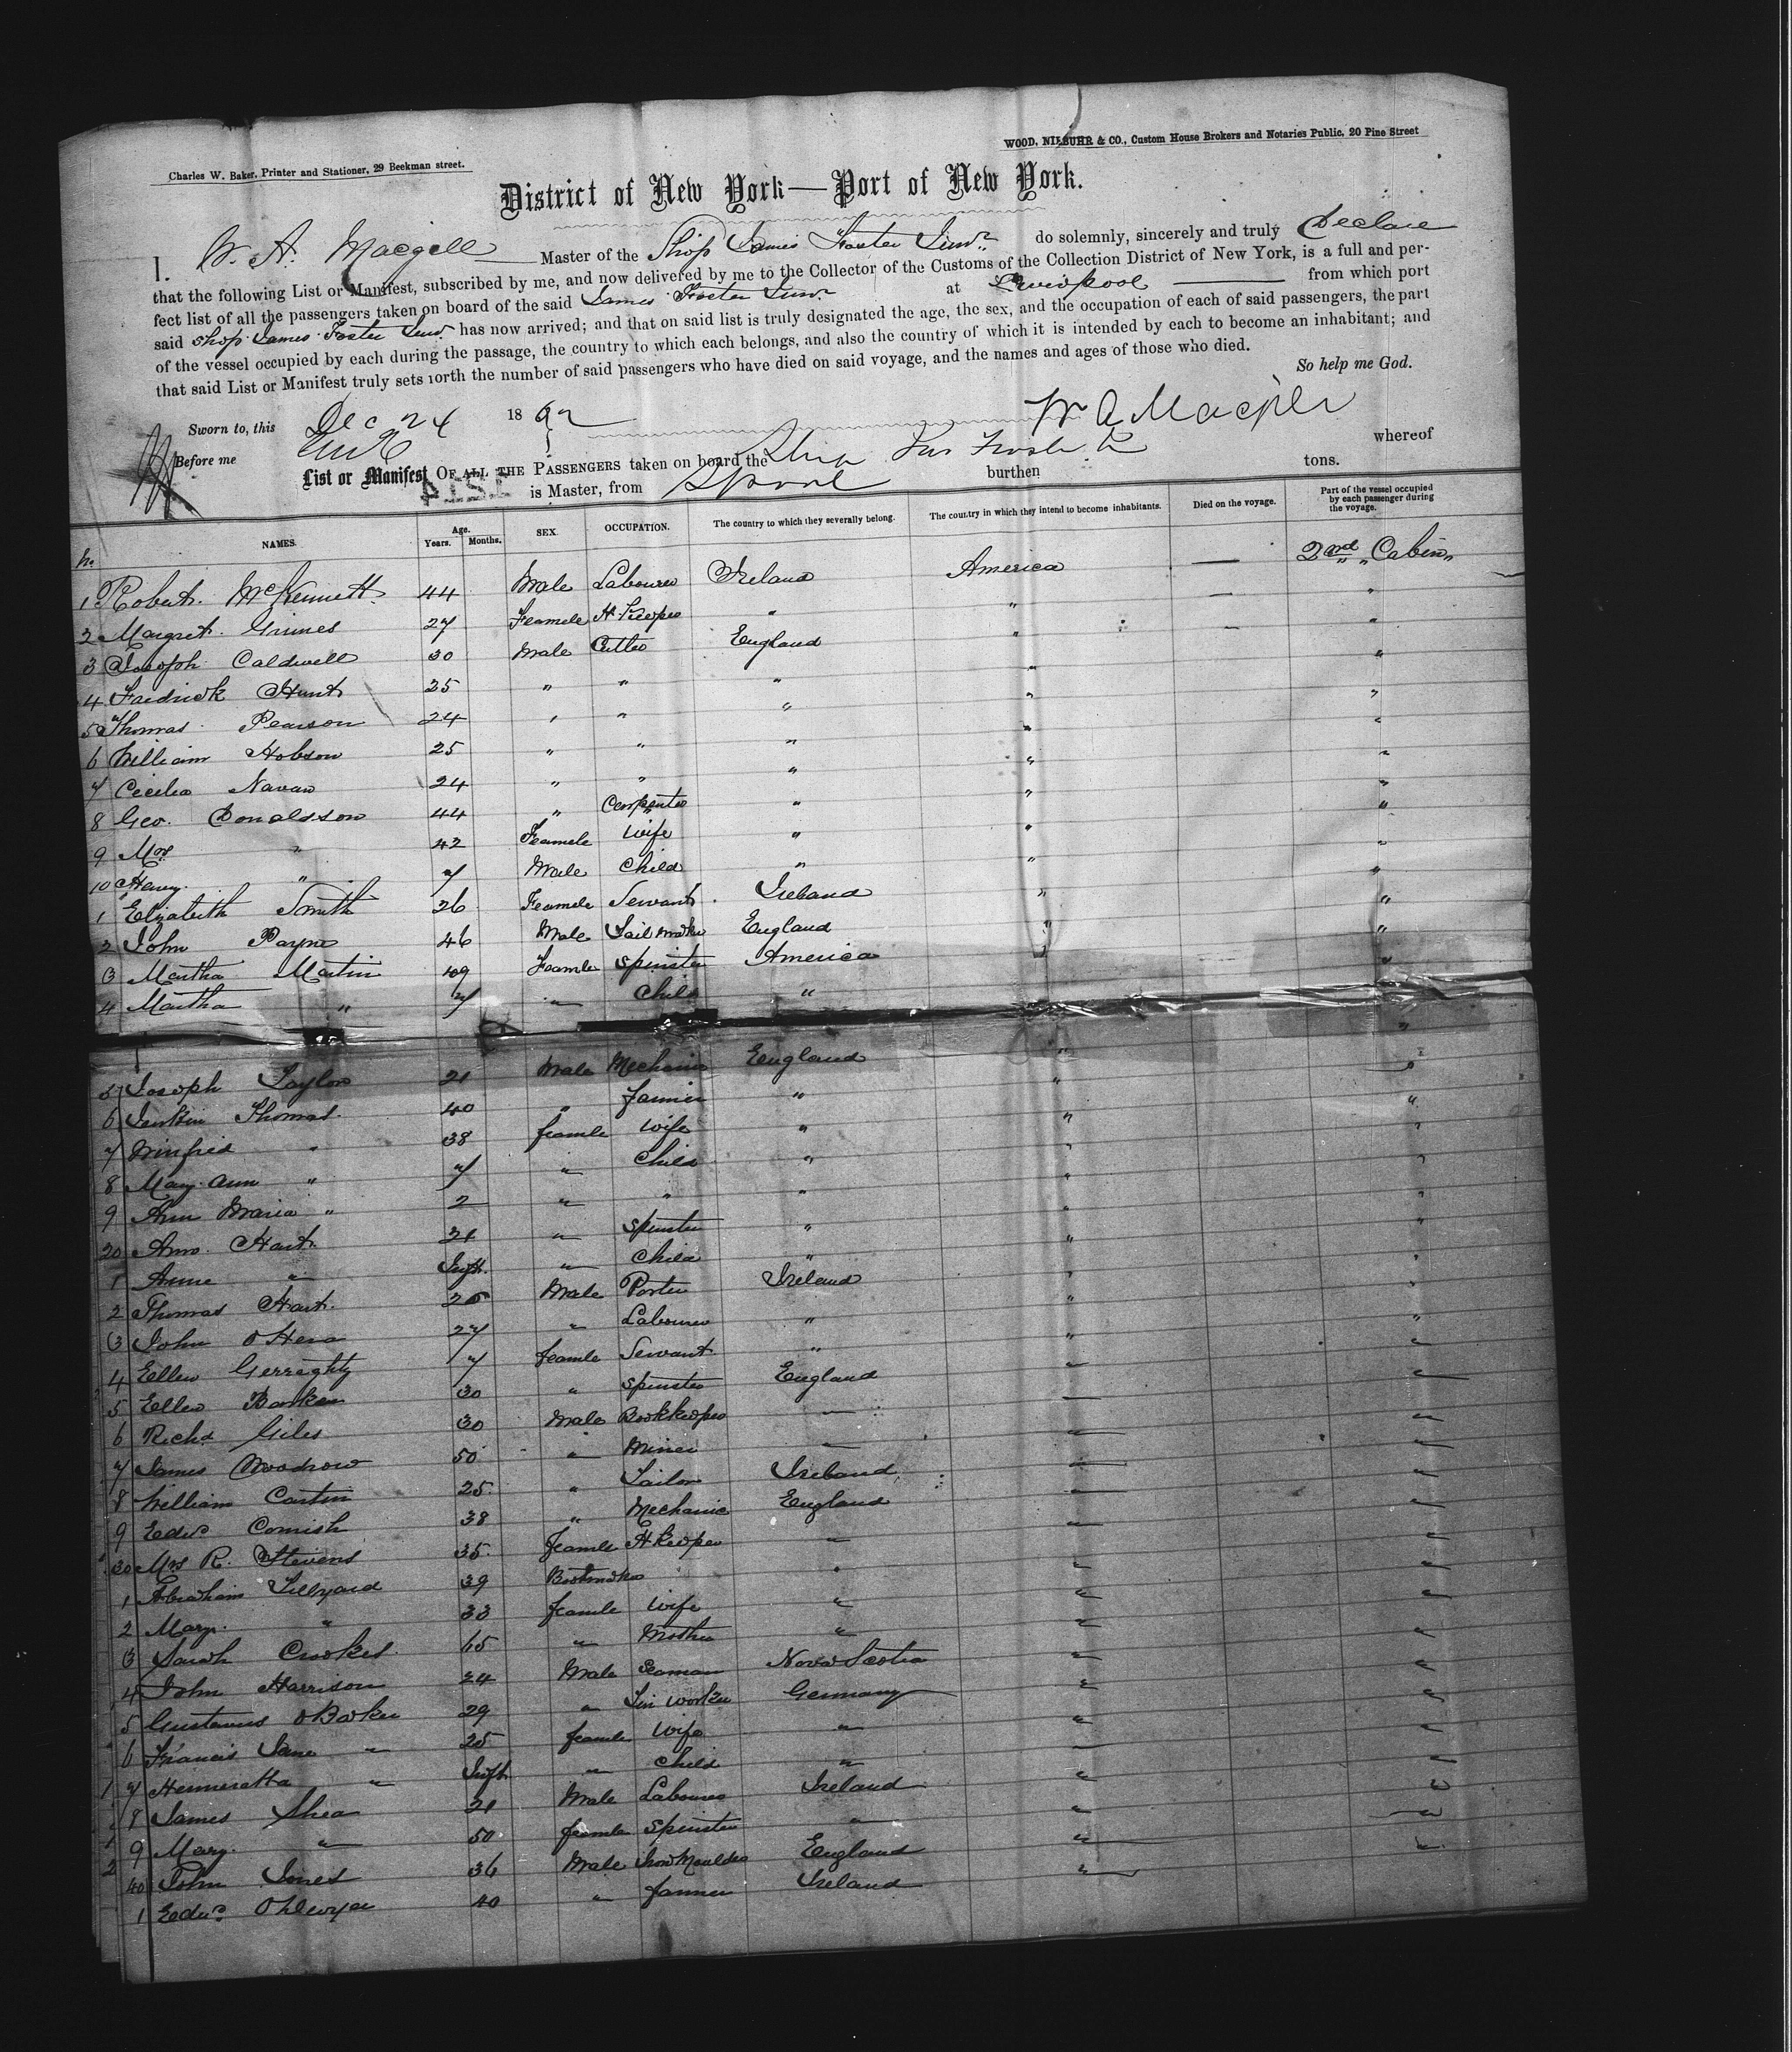 WOOD, NIEBUHR & CO., Custom House Brokers and Notaries Public, 20 Pine Street
Charles W. Baker, Printer and Stationer, 29 Beekman street.
District of New York—Port of New York.
I. W. A. Macgill Master of the Ship James Foster Junr. do solemnly, sincerely and truly Declare
that the following List or Manifest, subscribed by me, and now delivered by me to the Collector of the Customs of the Collection District of New York, is a full and per-
fect list of all the passengers taken on board of the said James Foster Junr. at Liverpool from which port
said Ship James Foster Junr. has now arrived; and that on said list is truly designated the age, the sex, and the occupation of each of said passengers, the part
of the vessel occupied by each during the passage, the country to which each belongs, and also the country of which it is intended by each to become an inhabitant; and
that said List or Manifest truly sets forth the number of said passengers who have died on said voyage, and the names and ages of those who died.
So help me God.
Sworn to, this Dec 24 1862
Before me
List or Manifest OF ALL THE PASSENGERS taken on board the Ship Jas Foster Jr whereof
1274 is Master, from Lpool burthen tons.
NAMES. Age. Years. Months. SEX. OCCUPATION. The country to which they severally belong. The country in which they intend to become inhabitants. Died on the voyage. Part of the vessel occupied by each passenger during the voyage.
1 Robert McKennett 44 Male Labourer Ireland America — 2nd " Cabin "
2 Margret Grimes 27 Feamele H. Keeper " " — "
3 Joseph Caldwell 30 Male Cutler England " — "
4 Fredrick Hunt 25 " " " " "
5 Thomas Pearson 24 " " " " "
6 William Hobson 25 " " " " "
7 Cecilia Navan 24 " " " " "
8 Geo. Donaldson 44 " Carpenter " " "
9 Mrs " 42 Feamele Wife " " "
10 Henry " 7 Male Child " " "
1 Elizabeth Smith 26 Feamele Servant Ireland " "
2 John Payne 46 Male Sail Maker England " "
3 Martha Martin 49 Feamle Spinster America " "
4 Martha " 7 " Child " "
5 Joseph Taylor 21 Male Mechanic England " "
6 Jenkin Thomas 40 " farmer " " "
7 Winfred " 38 feamle Wife " " "
8 Mary Ann " 7 " Child " " "
9 Ann Maria " 2 " " " " "
20 Ann Hart 21 " Spinster " " "
1 Anne " Inft. " Child " " "
2 Thomas Hart 26 Male Porter Ireland " "
3 John O Hera 27 " Labourer " " "
4 Ellen Gerrighty 7 feamle Servant " " "
5 Ellen Barker 30 " Spinster England " "
6 Richd Giles 30 Male Bookkeeper " " "
7 James Woodrow 50 " Miner " " "
8 William Cartin 25 " Tailor Ireland " "
9 Edwd Cornish 38 " Mechanic England " "
30 Mrs R. Stevens 35 feamle H Keeper " " "
1 Abraham Tillyard 39 Bootmaker " " "
2 Mary " 33 feamle Wife " " "
3 Sarah Crookes 65 " Mother " " "
4 John Harrison 24 Male Seaman Nova Scotia " "
5 Gustavus Barker 29 " Tin worker Germany " "
6 Francis Jane " 25 feamle Wife " " "
7 Henneratta " Inft " Child " " "
8 James Shea 21 Male Labourer Ireland " "
9 Mary " 50 feamle Spinster " " "
40 John Jones 36 Male Iron Moulder England " "
1 Edwd O hDwyer 40 " farmer Ireland "